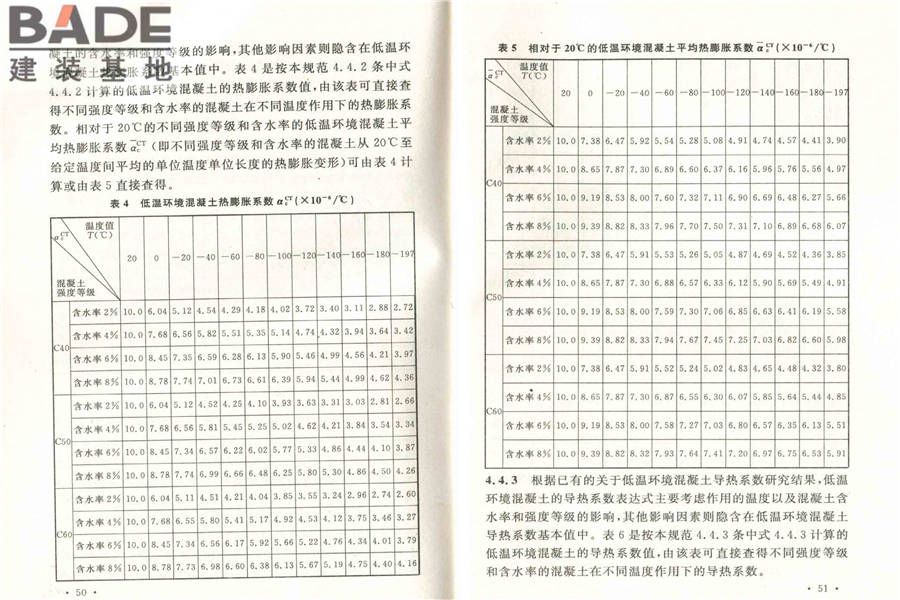 BADE
建装基地
凝土的含水率和强度等级的影响,其他影响因素则隐含在低温环
基本值中。表 4 是按本规范 4.4.2 条中式
4.4.2 计算的低温环境混凝土的热膨胀系数值,由该表可直接查
得不同强度等级和含水率的混凝土在不同温度作用下的热膨胀系
数。相对于 20℃的不同强度等级和含水率的低温环境混凝土平
均热膨胀系数 ᾱcCT (即不同强度等级和含水率的混凝土从 20℃至
给定温度间平均的单位温度单位长度的热膨胀变形)可由表 4 计
算或由表 5 直接查得。
表 4 低温环境混凝土热膨胀系数 αcCT (×10⁻⁶/℃)
温度值
T(℃)
αcCT
20 0 −20 −40 −60 −80 −100 −120 −140 −160 −180 −197
混凝土
强度等级
C40
含水率 2% 10.0 6.04 5.12 4.54 4.29 4.18 4.02 3.72 3.40 3.11 2.88 2.72
含水率 4% 10.0 7.68 6.56 5.82 5.51 5.35 5.14 4.74 4.32 3.94 3.64 3.42
含水率 6% 10.0 8.45 7.35 6.59 6.28 6.13 5.90 5.46 4.99 4.56 4.21 3.97
含水率 8% 10.0 8.78 7.74 7.01 6.73 6.61 6.39 5.94 5.44 4.99 4.62 4.36
C50
含水率 2% 10.0 6.04 5.12 4.52 4.25 4.10 3.93 3.63 3.31 3.03 2.81 2.66
含水率 4% 10.0 7.68 6.56 5.81 5.45 5.25 5.02 4.62 4.21 3.84 3.54 3.34
含水率 6% 10.0 8.45 7.34 6.57 6.22 6.02 5.77 5.33 4.86 4.44 4.10 3.87
含水率 8% 10.0 8.78 7.74 6.99 6.66 6.48 6.25 5.80 5.30 4.86 4.50 4.26
C60
含水率 2% 10.0 6.04 5.11 4.51 4.21 4.04 3.85 3.55 3.24 2.96 2.74 2.60
含水率 4% 10.0 7.68 6.55 5.80 5.41 5.17 4.92 4.53 4.12 3.75 3.46 3.27
含水率 6% 10.0 8.45 7.34 6.56 6.17 5.92 5.66 5.22 4.76 4.34 4.01 3.79
含水率 8% 10.0 8.78 7.73 6.98 6.60 6.38 6.13 5.67 5.19 4.75 4.40 4.16
· 50 ·
表 5 相对于 20℃的低温环境混凝土平均热膨胀系数 ᾱcCT (×10⁻⁶/℃)
温度值
T(℃)
ᾱcCT
20 0 −20 −40 −60 −80 −100 −120 −140 −160 −180 −197
混凝土
强度等级
C40
含水率 2% 10.0 7.38 6.47 5.92 5.54 5.28 5.08 4.91 4.74 4.57 4.41 3.90
含水率 4% 10.0 8.65 7.87 7.30 6.89 6.60 6.37 6.16 5.96 5.76 5.56 4.97
含水率 6% 10.0 9.19 8.53 8.00 7.60 7.32 7.11 6.90 6.69 6.48 6.27 5.66
含水率 8% 10.0 9.39 8.82 8.33 7.96 7.70 7.50 7.31 7.10 6.89 6.68 6.07
C50
含水率 2% 10.0 7.38 6.47 5.91 5.53 5.26 5.05 4.87 4.69 4.52 4.36 3.85
含水率 4% 10.0 8.65 7.87 7.30 6.88 6.57 6.33 6.12 5.90 5.69 5.49 4.91
含水率 6% 10.0 9.19 8.53 8.00 7.59 7.30 7.06 6.85 6.63 6.41 6.19 5.58
含水率 8% 10.0 9.39 8.82 8.33 7.94 7.67 7.45 7.25 7.03 6.82 6.60 5.98
C60
含水率 2% 10.0 7.38 6.47 5.91 5.52 5.24 5.02 4.83 4.65 4.48 4.32 3.80
含水率 4% 10.0 8.65 7.87 7.30 6.87 6.55 6.30 6.07 5.85 5.64 5.44 4.85
含水率 6% 10.0 9.19 8.53 8.00 7.58 7.27 7.03 6.80 6.57 6.35 6.13 5.51
含水率 8% 10.0 9.39 8.82 8.32 7.93 7.64 7.41 7.20 6.97 6.75 6.53 5.91
4.4.3 根据已有的关于低温环境混凝土导热系数研究结果,低温
环境混凝土的导热系数表达式主要考虑作用的温度以及混凝土含
水率和强度等级的影响,其他影响因素则隐含在低温环境混凝土
导热系数基本值中。表 6 是按本规范 4.4.3 条中式 4.4.3 计算的
低温环境混凝土的导热系数值,由该表可直接查得不同强度等级
和含水率的混凝土在不同温度作用下的导热系数。
· 51 ·